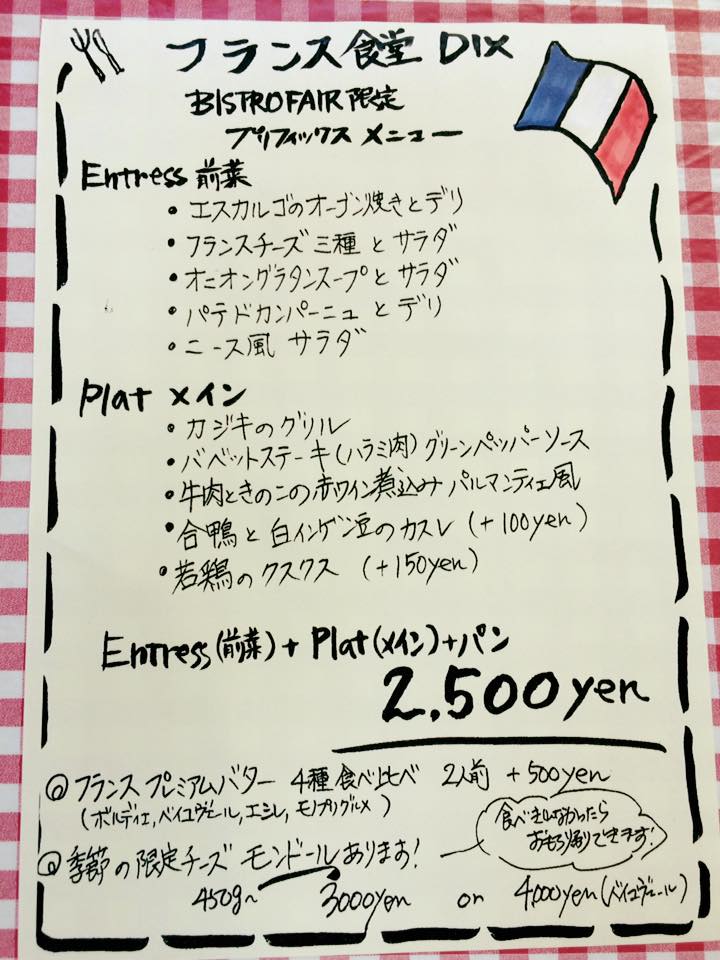 フランス食堂 DIX
BISTROFAIR限定
プリフィックス メニュー
Entress 前菜
・エスカルゴのオーブン焼きとデリ
・フランスチーズ三種 と サラダ
・オニオングラタンスープと サラダ
・パテドカンパーニュ と デリ
・ニース風 サラダ
Plat メイン
・カジキのグリル
・バベットステーキ(ハラミ肉)グリーンペッパーソース
・牛肉ときのこの赤ワイン煮込み パルマンティエ風
・合鴨と 白インゲン豆の カスレ (+100yen)
・若鶏の クスクス (+150yen)
Entress(前菜)+ Plat(メイン)+パン
2,500yen
◎ フランス プレミアムバター 4種 食べ比べ 2人前 +500yen
(ボルディエ, ベイユヴェール, エシレ, モノプリグルメ)
食べきれなかったら
おもち帰りできます!
◎ 季節の限定チーズ モンドールあります!
450g~ 3000yen or 4,000yen(ベイユヴェール)